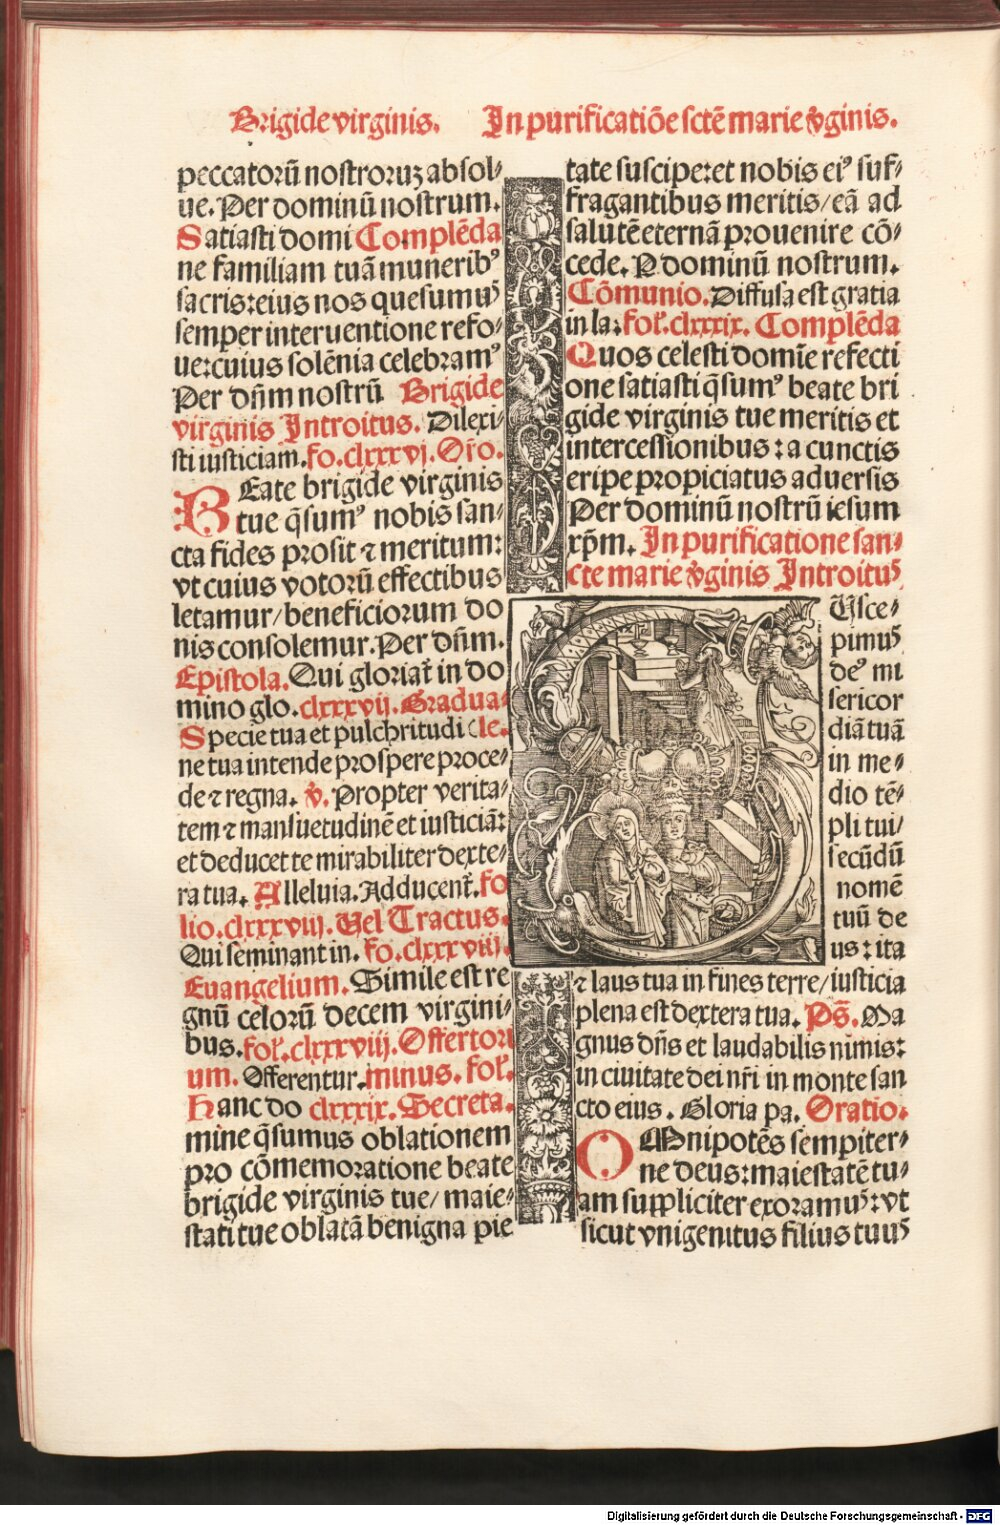 Brigide virginis. In purificatiõe sctẽ marie v̾ginis.
peccatorũ nostroruʒ absol⸗
ue. Per dominũ nostrum.
Satiasti domi Complẽda
ne familiam tuã munerib⁹
sacris: eius nos quesumus
semper interuentione refo⸗
ue: cuius solẽnia celebram⁹
Per dñm nostrũ Brigide
virginis Introitus. Dilexi⸗
sti iusticiam. fo. clxxxvj. Oŕo.
BEate brigide virginis
tue q̃sum⁹ nobis san⸗
cta fides prosit ⁊ meritum:
vt cuius votorũ effectibus
letamur/ beneficiorum do
nis consolemur. Per dñm.
Epistola. Qui gloriat᷑ in do
mino glo. clxxxvij. Gradua⸗
Specie tua et pulchritudi (le.
ne tua intende prospere proce⸗
de ⁊ regna. v̾. Propter verita⸗
tem ⁊ mansuetudinẽ et iusticiã:
et deducet te mirabiliter dexte⸗
ra tua. Alleluia. Adducent᷑. fo
lio. clxxxviij. Uel Tractus.
Qui seminant in. fo. clxxxviij.
Euangelium. Simile est re
gnũ celorũ decem virgini⸗
bus. fol̕. clxxxviij. Offertori
um. Offerentur. minus. fol̕.
Hanc do clxxxix. Secreta.
mine q̃sumus oblationem
pro cõmemoratione beate
brigide virginis tue/ maie⸗
stati tue oblatã benigna pie
tate suscipe: et nobis ei⁹ suf⸗
fragantibus meritis/ eã ad
salutẽ eternã prouenire cõ⸗
cede. P dominũ nostrum.
Cõmunio. Diffusa est gratia
in la: fol̕. clxxxix. Complẽda
Quos celesti domĩe refecti
one satiasti q̃sum⁹ beate bri
gide virginis tue meritis et
intercessionibus: a cunctis
eripe propiciatus aduersis
Per dominũ nostrũ iesum
xp̃m. In purificatione san⸗
cte marie v̾ginis Introitus
SUsce⸗
pimus
de⁹ mi
sericor
diã tuã
in me⸗
dio tẽ⸗
pli tui/
secũdũ
nomẽ
tuũ de
us: ita
⁊ laus tua in fines terre/ iusticia
plena est dextera tua. Ps̃. Ma
gnus dñs et laudabilis nimis:
in ciuitate dei nr̃i in monte san
cto eius. Gloria pa. Oratio.
OMnipotẽs sempiter⸗
ne deus: maiestatẽ tu⸗
am suppliciter exoramus: vt
sicut vnigenitus filius tuus
Digitalisierung gefördert durch die Deutsche Forschungsgemeinschaft - DFG